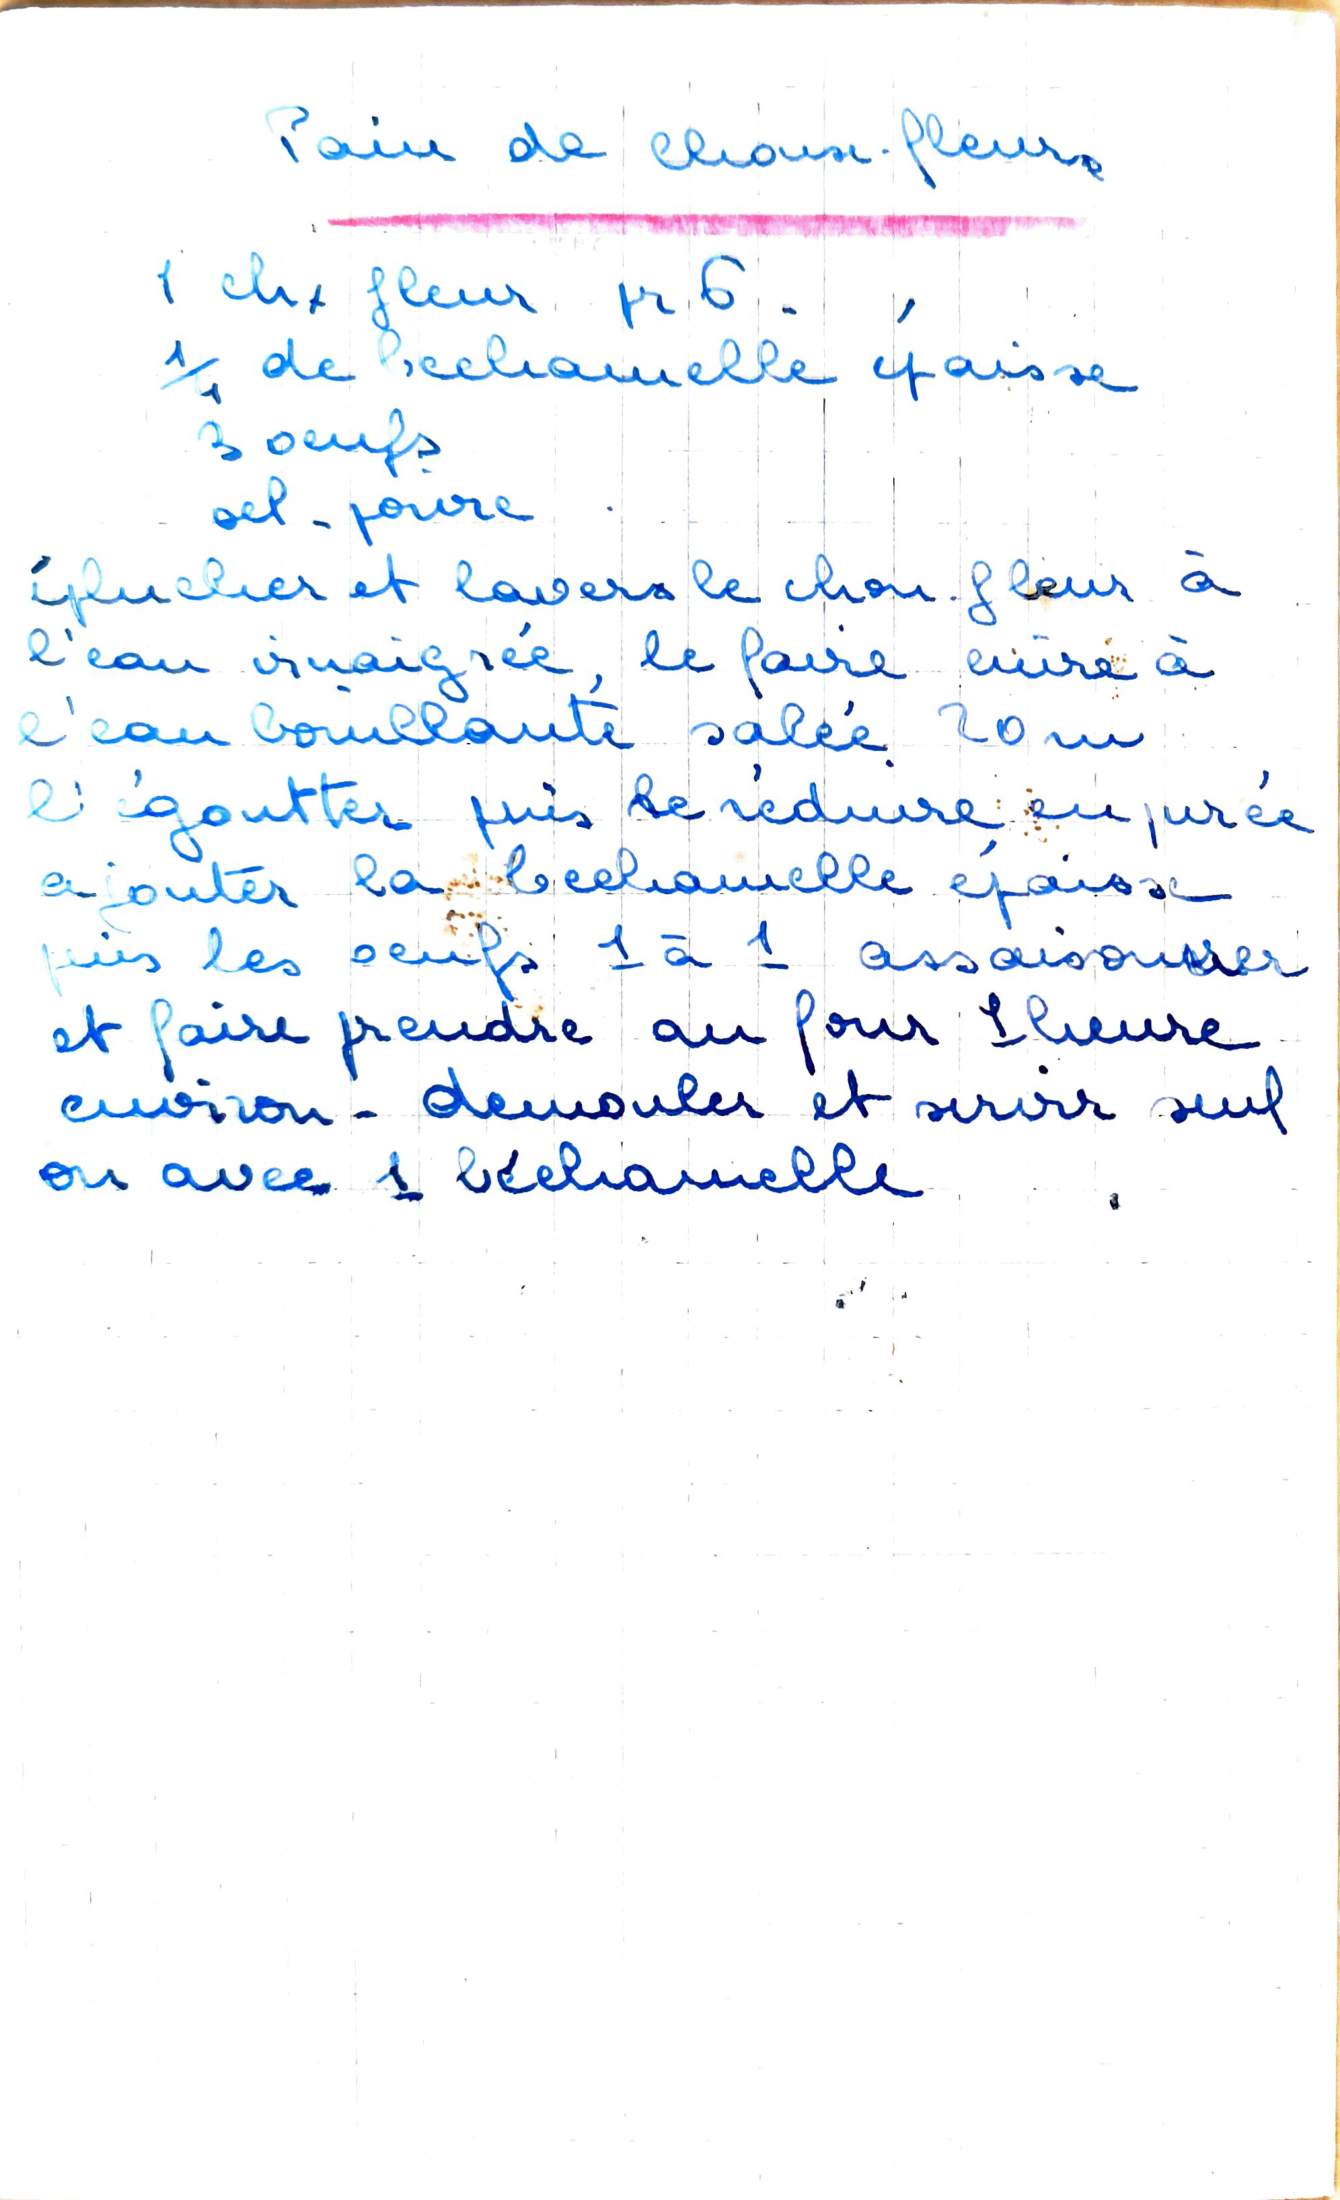 Pain de choux-fleurs
1 chx fleur pr 6.
1/4 de bechamelle épaisse
3 oeufs
sel - poivre
éplucher et laver le chou-fleur à
l'eau vinaigrée, le faire cuire à
l'eau bouillante salée 20 m
l'égoutter puis le réduire en purée
ajouter la bechamelle épaisse
puis les oeufs 1 à 1 assaisonner
et faire prendre au four 1 heure
environ - demouler et servir seul
ou avec 1 béchamelle